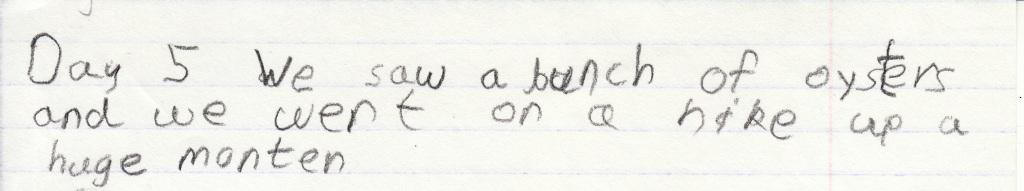 Day 5 We saw a bunch of oysters
and we went on a hike up a
huge monten